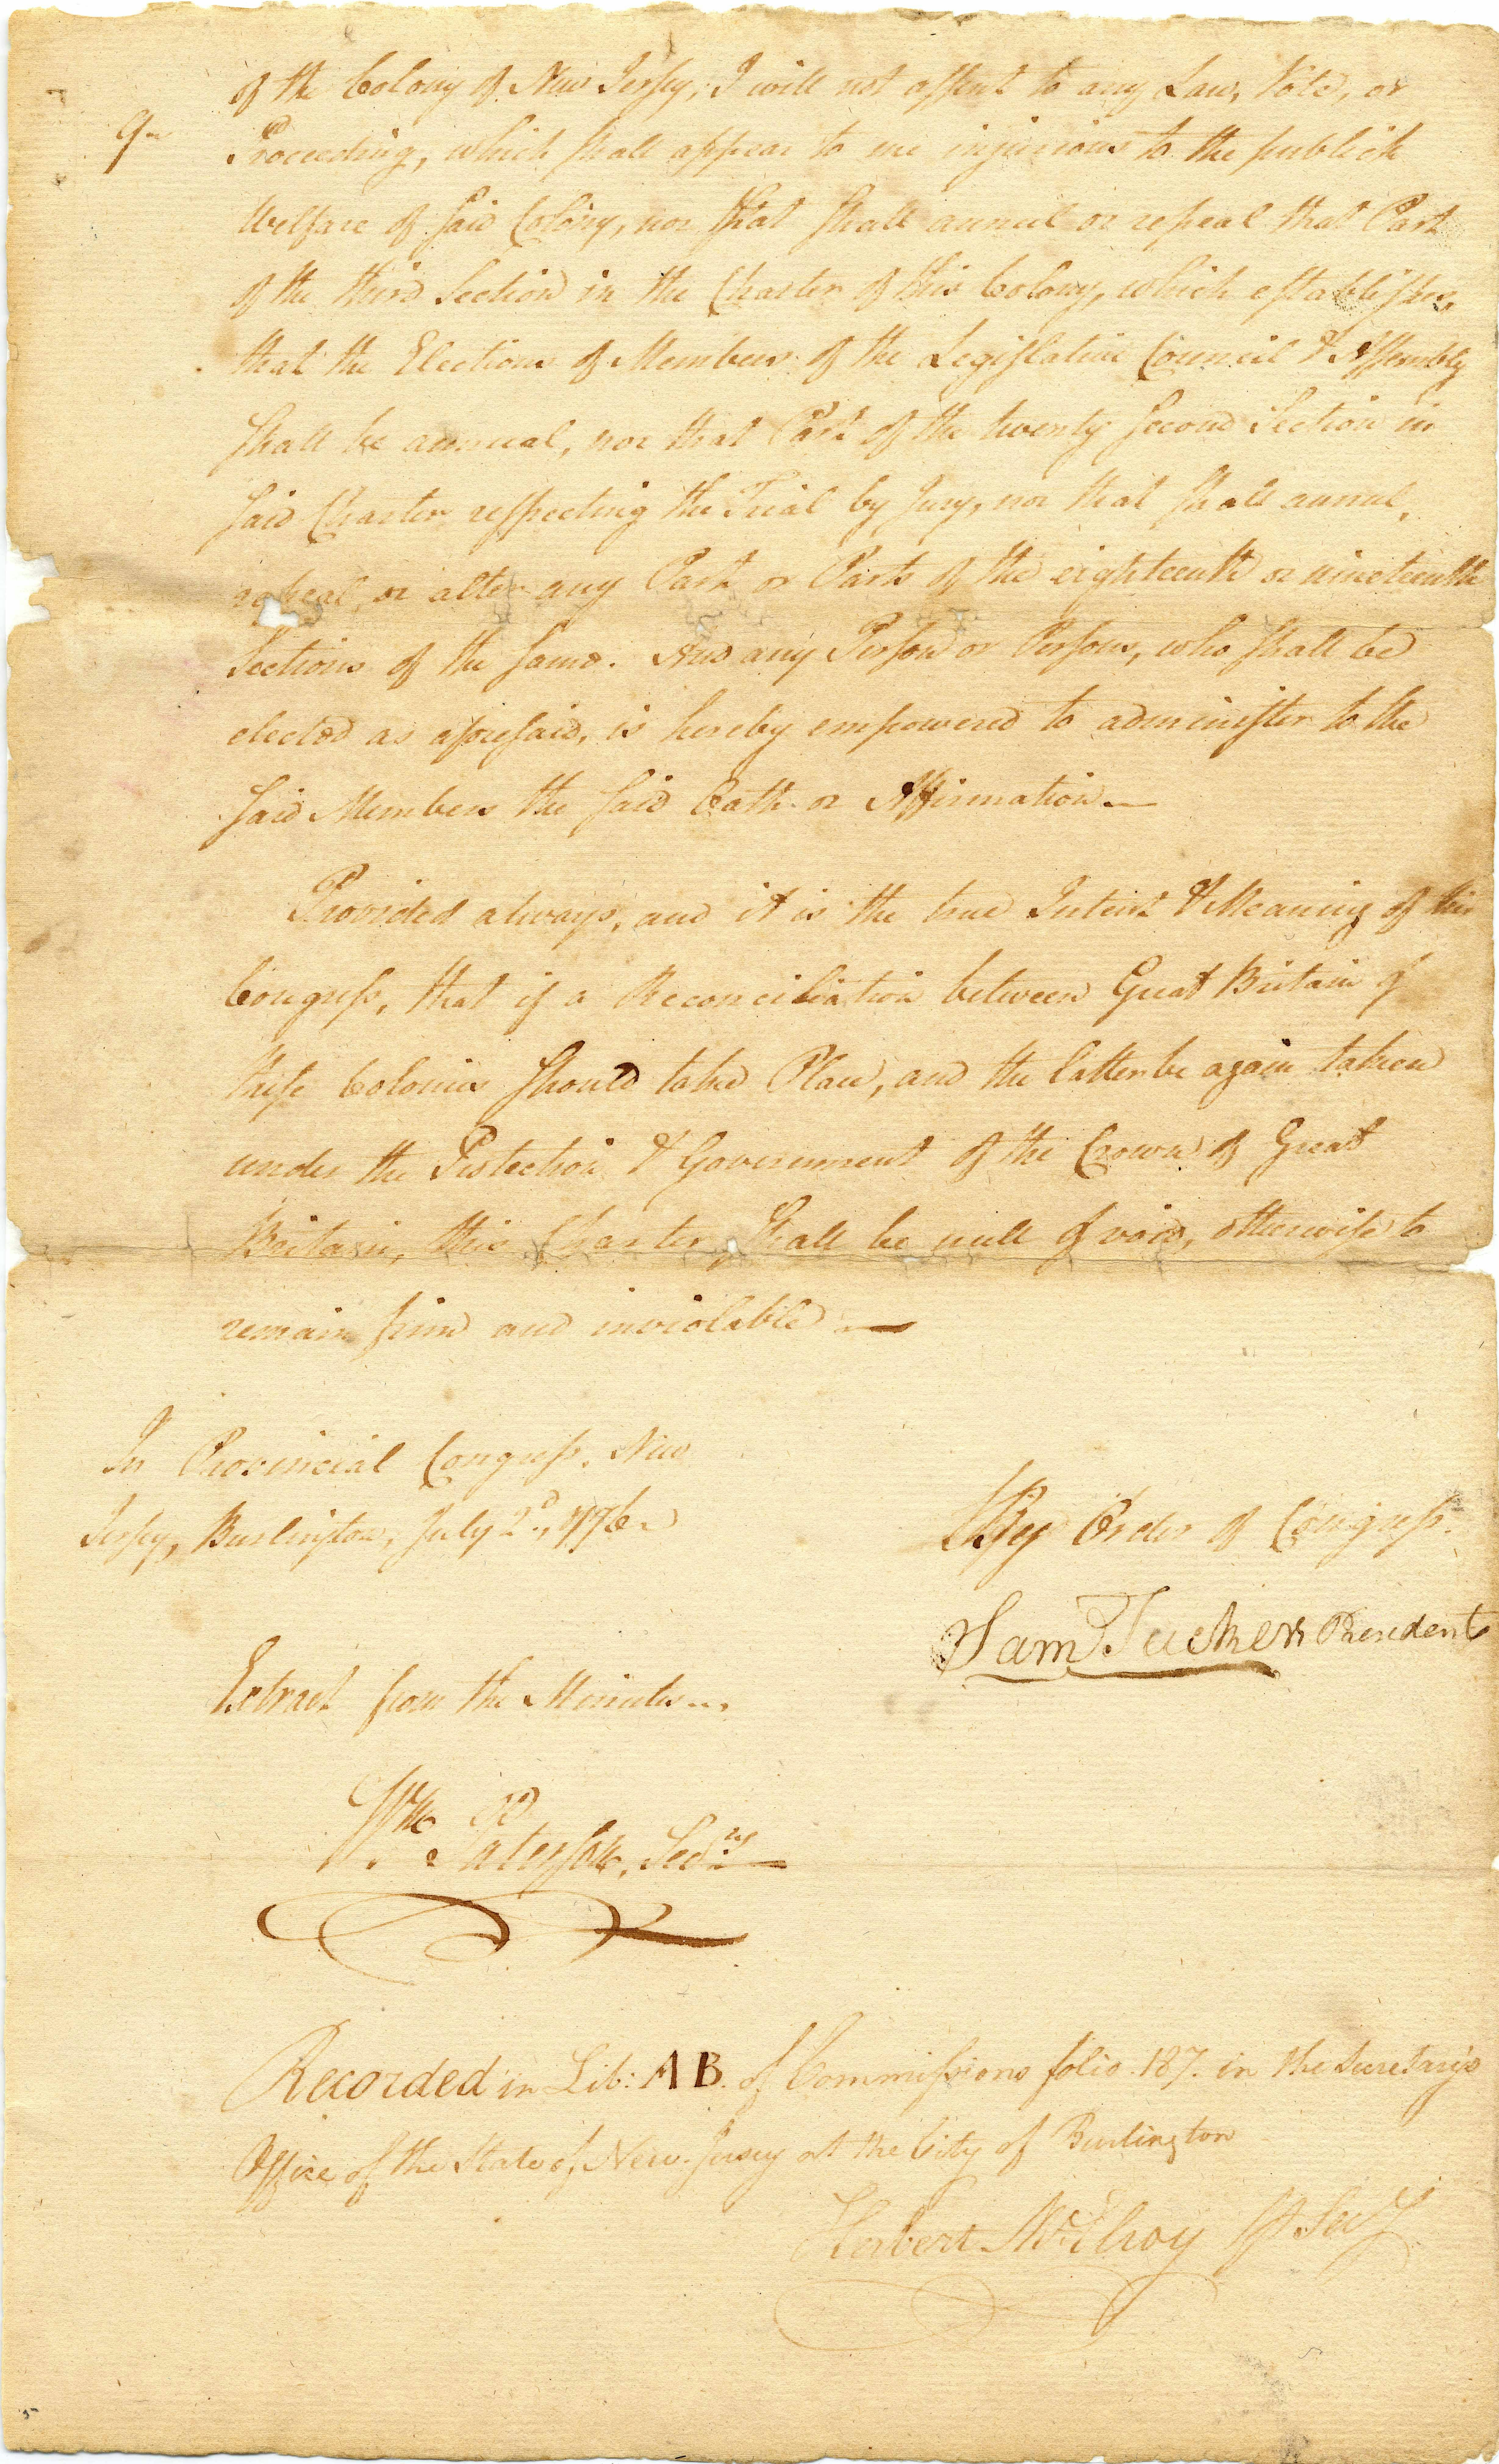 of the Colony of New Jersey, I will not assent to any Law, Vote, or
9
Proceeding, which shall appear to me injurious to the publick
Welfare of said Colony, nor that shall annul or repeal that Part
of the third Section in the Charter of this Colony, which establishes,
that the Elections of Members of the Legislative Council & Assembly
shall be annual, nor that Part of the twenty second Section in
said Charter respecting the Trial by Jury, nor that shall annul,
repeal, or alter any Part or Parts of the eighteenth or nineteenth
Sections of the same. And any Person or Persons, who shall be
elected as aforesaid, is hereby empowered to administer to the
said Members the said Oath or Affirmation—
Provided always, and it is the true Intent & Meaning of this
Congress, that if a Reconciliation between Great Britain &
these Colonies should take Place, and the latter be again taken
under the Protection & Government of the Crown of Great
Britain, this Charter shall be null & void, otherwise to
remain firm and inviolable —
In Provincial Congress, New
Jersey, Burlington, July 2d, 1776
By Order of Congress.
Sam Tucker President
Extract from the Minutes
Wm Paterson, Secry
Recorded in Lib: AB. of Commissions folio 187. in the Secretary's
Office of the State of New-Jersey at the City of Burlington
Herbert McElroy Secy